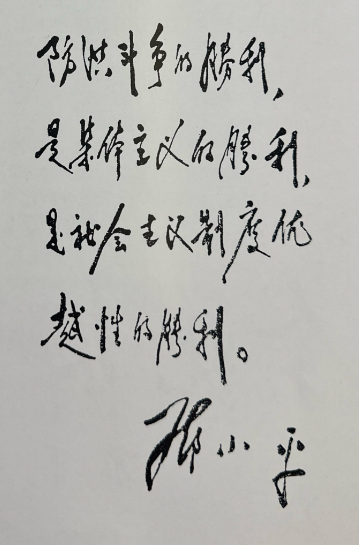 防洪斗争的勝利，
是集体主义的勝利，
是社会主义制度优
越性的勝利。
邓小平